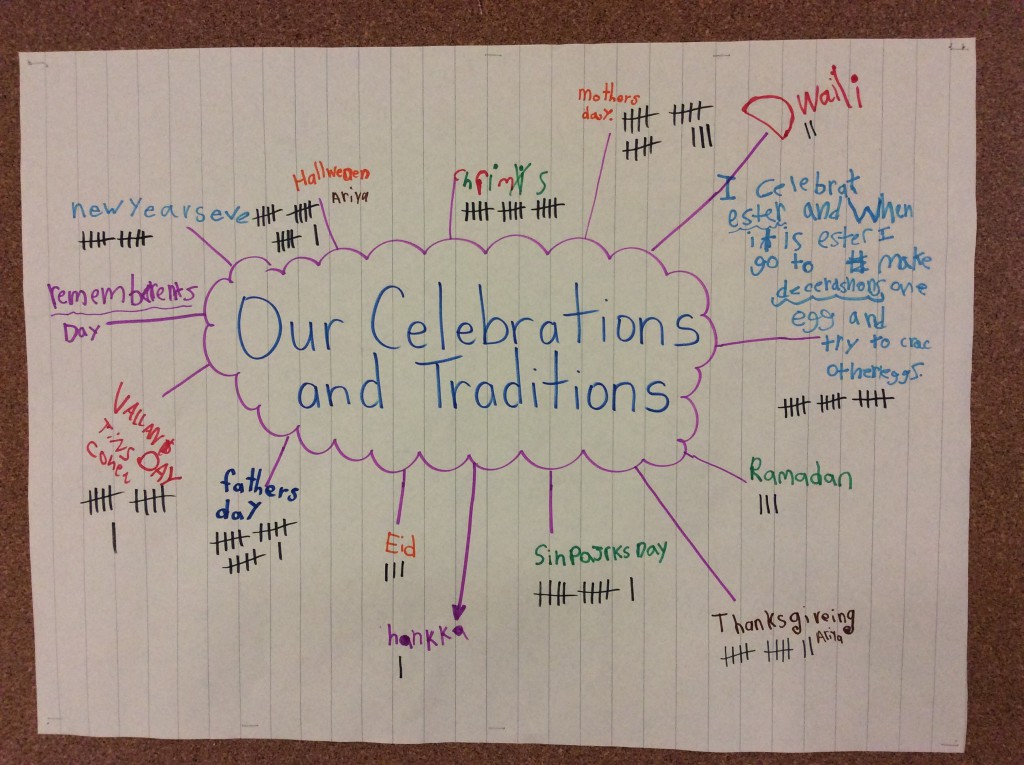 Our Celebrations
and Traditions
mothers
day.
Dwaili
Hallween
Ariya
newyearseve
I celebrat
ester and When
it is ester I
go to make
decerashons one
egg and
try to crac
othereggs.
Day
VALLAN
TiNS DAY
fathers
day
Eid
hankka
SinPajrksDay
Ramadan
Thanksgiveing
Ariya